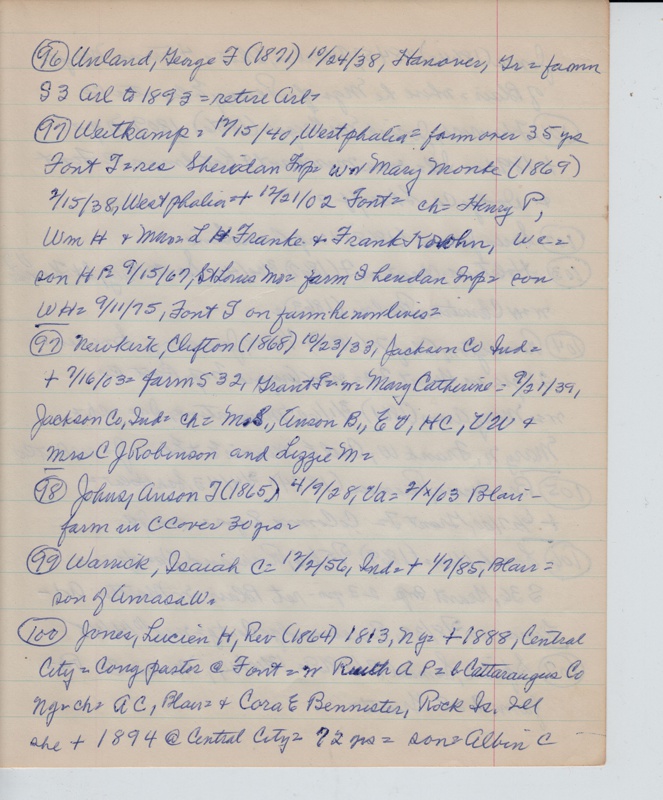 (96) Unland, George F (1871) 10/24/38, Hanover, Gr = farmn
S 3 Arl to 1893 = retire Arl =
(97) Weitkamp = 12/15/40, Westphalia = farm over 35 yrs
Font T = res Sheridan Tnp = w Mary Monke (1869)
2/15/38, Westphalia = + 12/21/02 Font = ch = Henry P,
Wm H & Mrs = L H Franke & Frank
son H P = 9/15/67, St Louis Mo = farm Sheridan Tnp = son
WH = 9/11/75, Font T on farm he now lives =
(97) Newkirk, Clifton (1868) 10/23/33, Jackson Co Ind =
+ 7/16/03 = farm S 32, Grant P = m = Mary Catherine = 9/21/39,
Jackson Co, Ind = ch = M.S., Anson B., E V, HC, VW &
Mrs C J Robinson and Lizzie M =
(98) Johns, Anson T (1865) 4/9/28, Va = 2/x/03 Blair -
farm in CC over 30 yrs =
(99) Warrick, Isaiah C = 12/2/56, Ind = + 1/7/85, Blair =
son of Amasa W.
(100) Jones, Lucien H, Rev (1864) 1813, Ny = + 1888, Central
City = Cong pastor @ Font = w Ruth A P = b Cattaraugus Co
Ny = ch = A C, Blair = & Cora E Bennister, Rock Is. Ill
she + 1894 @ Central City = 72 yrs = son = Albin C